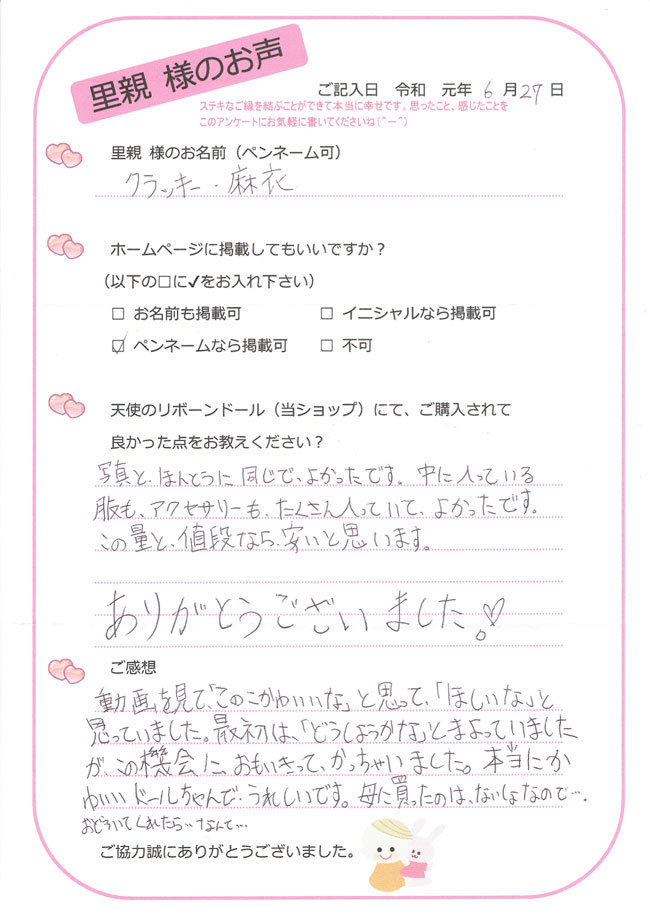 里親 様のお声
ご記入日 令和 元年 6 月 27 日
ステキなご縁を結ぶことができて本当に幸せです。思ったこと、感じたことを
このアンケートにお気軽に書いてくださいね(^ー^)
里親 様のお名前(ペンネーム可)
クラッキー・麻衣
ホームページに掲載してもいいですか?
(以下の□に✓をお入れ下さい)
□ お名前も掲載可 □ イニシャルなら掲載可
☑ ペンネームなら掲載可 □ 不可
天使のリボーンドール(当ショップ)にて、ご購入されて
良かった点をお教えください?
写真と、ほんとうに同じで、よかったです。中に入っている
服も、アクセサリーも、たくさん入っていて、よかったです。
この量と、値段なら、安いと思います。
ありがとうございました!
ご感想
動画を見て、「このこかわいいな」と思って、「ほしいな」と
思っていました。最初は、「どうしようかな」とまよっていました
が、この機会に、おもいきって、かっちゃいました。本当にか
わいいドールちゃんで、うれしいです。母に買ったのは、ないしょなので…。
おどろいてくれたら…なんて…
ご協力誠にありがとうございました。